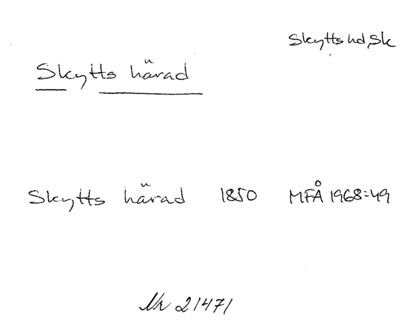 Skytts hd, Sk
Skytts härad
Skytts härad 1850 MFÅ 1968:49
21471